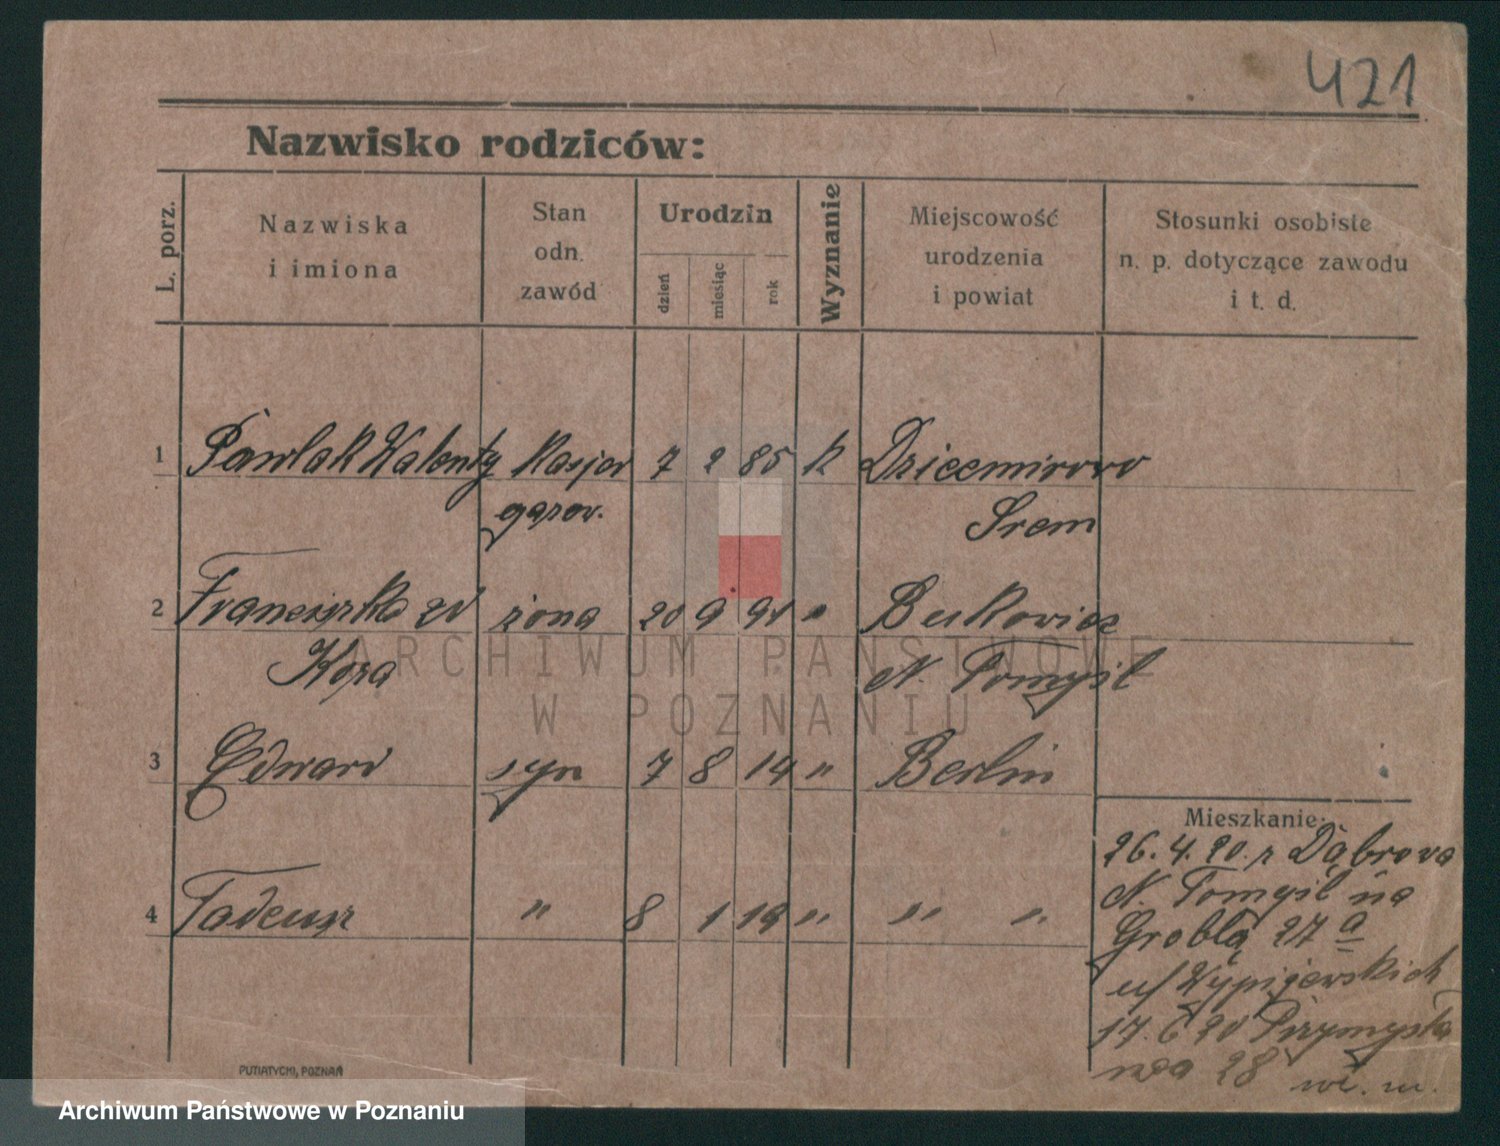 421
Nazwisko rodziców:
L. porz.
Nazwiska
i imiona
Stan
odn.
zawód
Urodzin
dzień
miesiąc
rok
Wyznanie
Miejscowość
urodzenia
i powiat
Stosunki osobiste
n. p. dotyczące zawodu
i t. d.
1 Pawlak Walenty kasjer 7 2 85 k Dziecmirowo
gazow. Srem
2 Franciszka zd żona 20 9 91 " Bukowiec
Koza N. Tomyśl
3 Edward syn 7 8 14 " Berlin
4 Tadeusz " 8 1 19 " " "
Mieszkanie:
26. 4. 20. z Dąbrowa
N. Tomyśl na
Groblą 27 a
u/ Wypijewskich
17. 6 20 Przemysła
wa 28 wł. m.
PUTIATYCKI, POZNAŃ
ARCHIWUM PAŃSTWOWE
W POZNANIU
Archiwum Państwowe w Poznaniu